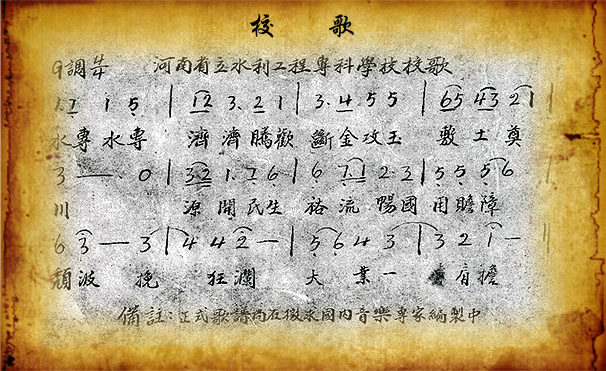 校歌
G調 4/4 河南省立水利工程專科學校校歌
1.1 1 5 | 12 3.2 1 | 3.4 5 5 | 65 43 2 1 |
水專水專 濟濟騰歡 斷金攻玉 敷土奠
3 — . 0 | 32 1.7 6 | 6 7.1 2.3 | 5 5 5 6 |
川 源開民生裕流暢國用贍障
6 3 — 3 | 4 4 2 — | 5 6 4 3 | 3 2 1 — ||
頹波挽狂瀾大業一肩擔
備註:正式歌譜尚在徵求國內音樂專家編製中